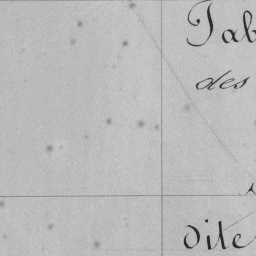 Tab
des
dite